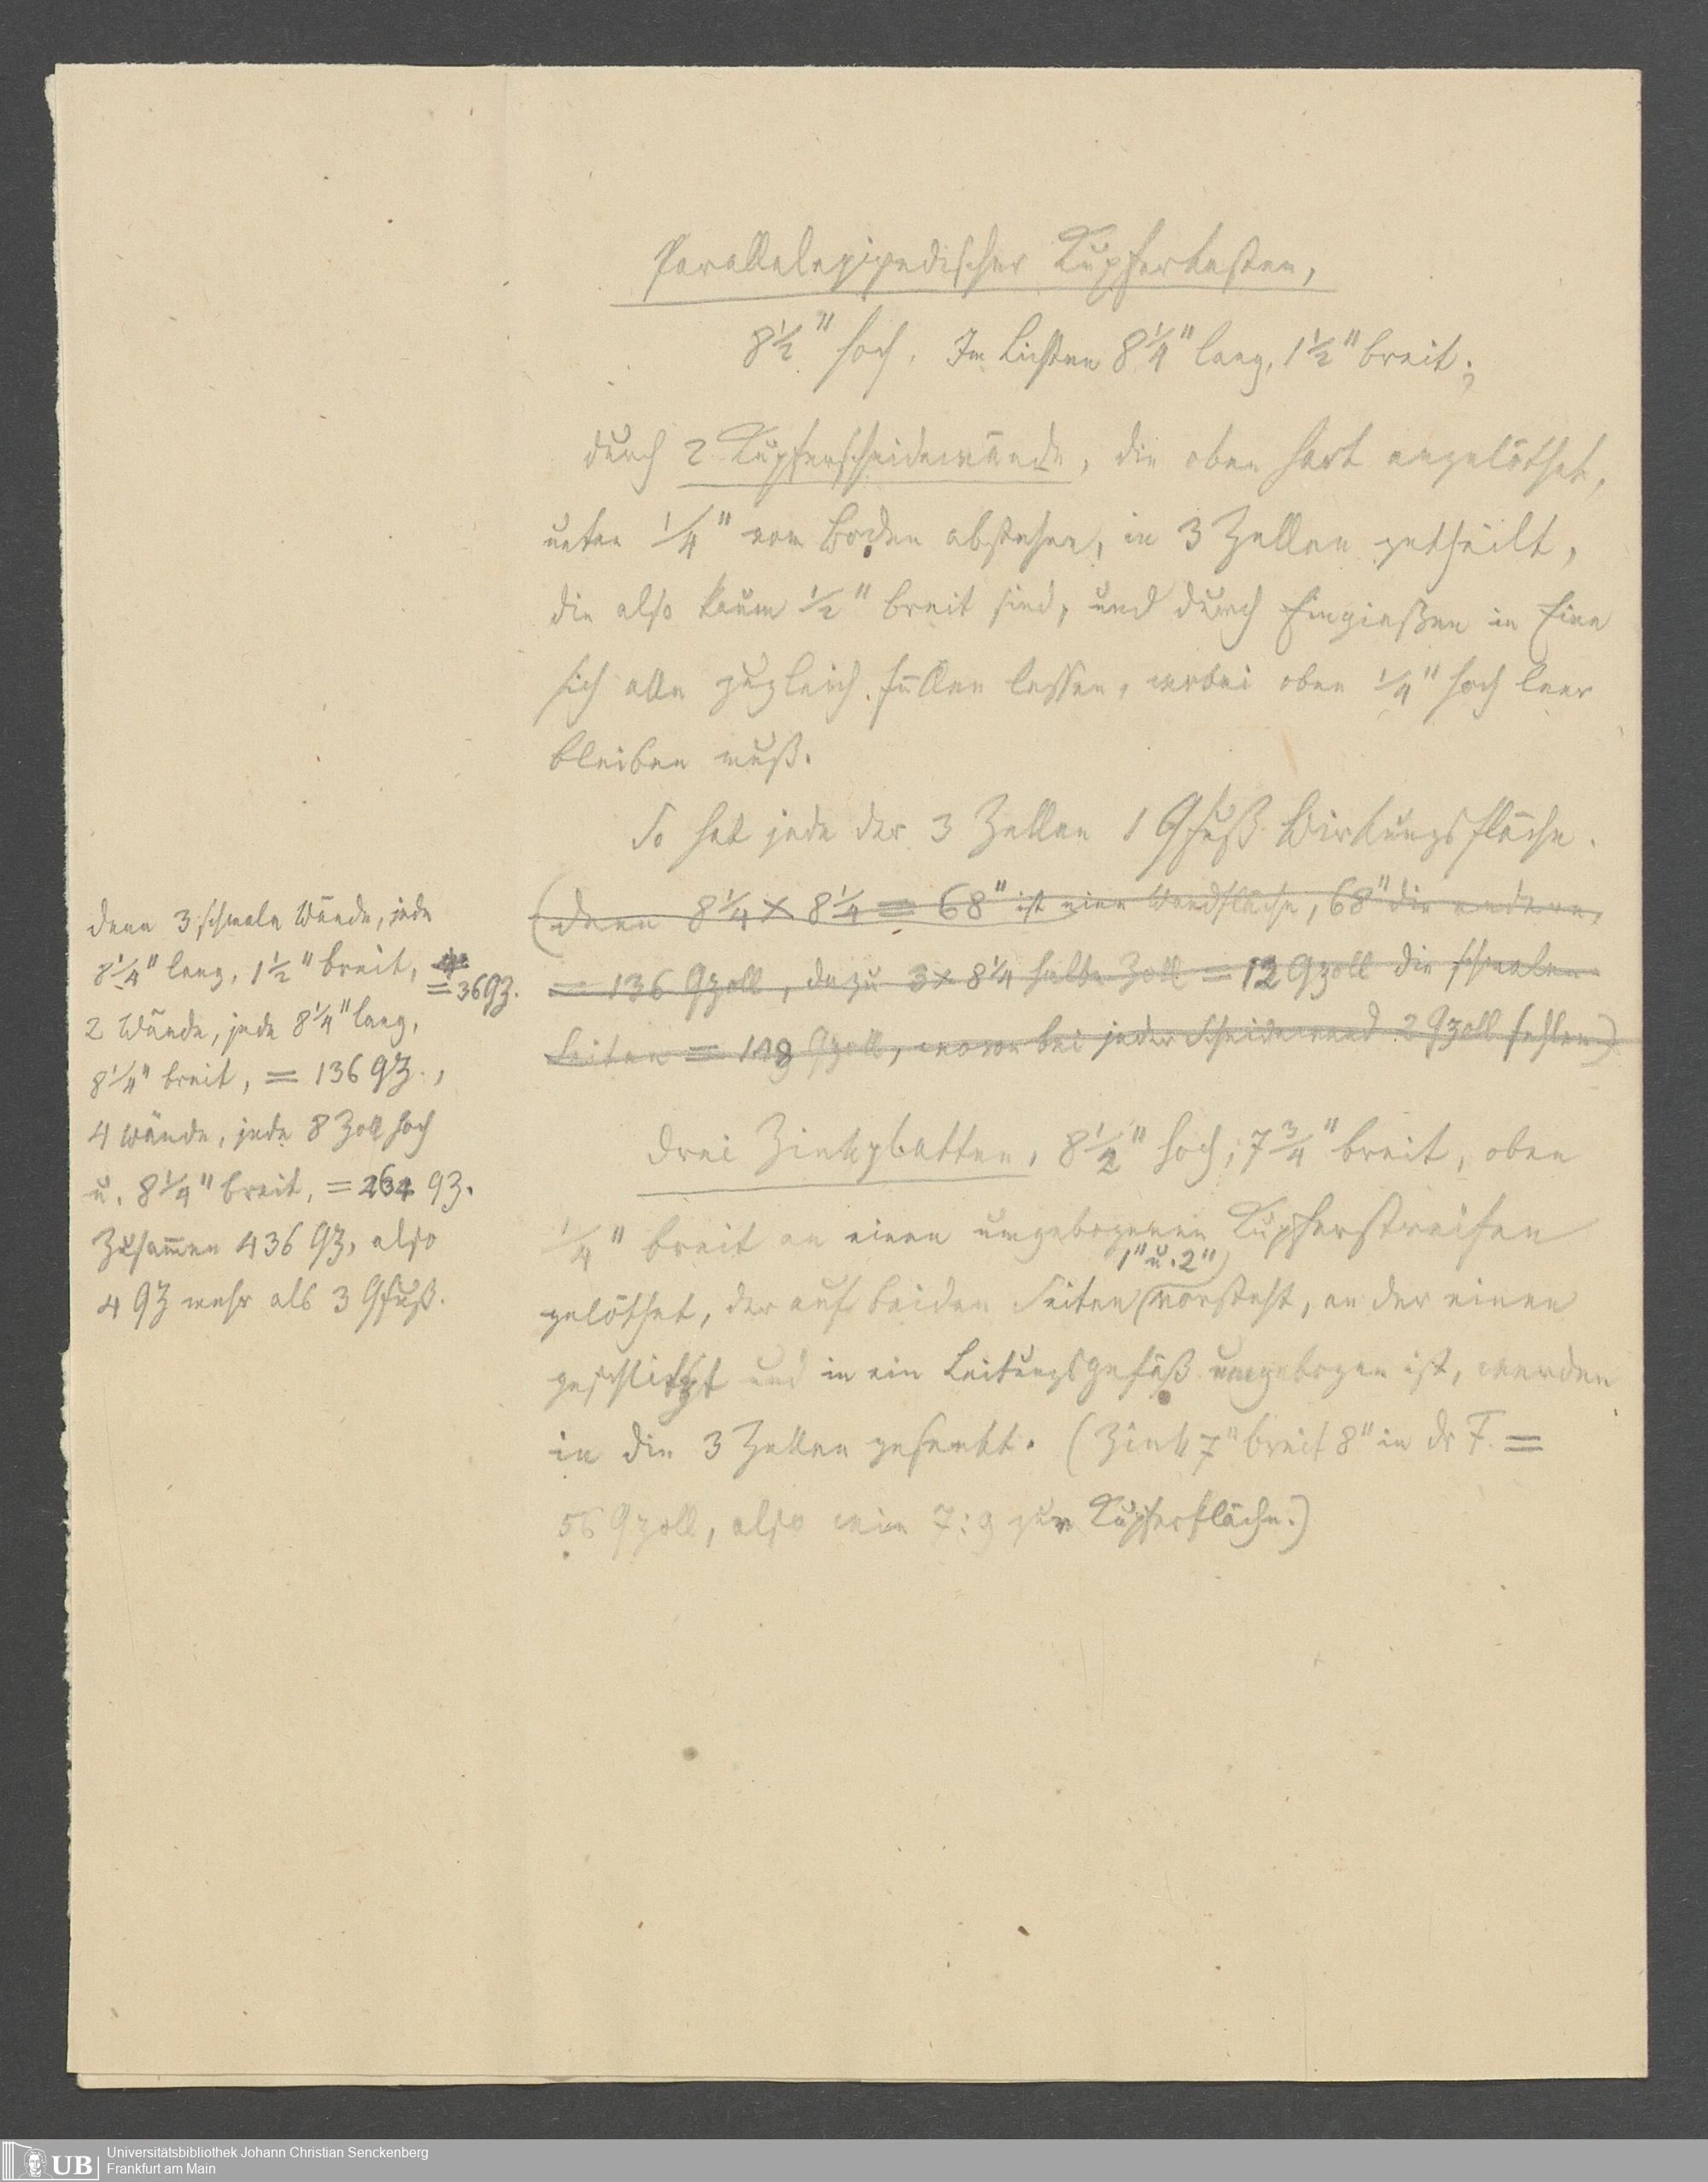 Parallelepipedischer Kupferkasten,
8 1/2" hoch. Im Lichten 8 1/4" lang, 1 1/2" breit;
durch 2 Kupferscheidewände, die oben hart angelöthet,
unten 1/4" vom Boden abstehen, in 3 Zellen getheilt,
die also kaum 1/2" breit sind, und durch Eingießen in Eine
sich alle zugleich füllen lassen, wobei oben 1/4" hoch leer
bleiben muß.
So hat jede der 3 Zellen 1 Qfuß Wirkungsfläche.
(denn 8 1/4 × 8 1/4 = 68" ist eine Wandfläche, 68" die andere,
= 136 Qzoll, dazu 3 × 8 1/4 halbe Zoll = 12 Qzoll die schmalen
Seiten = 148 Qzoll, wovon bei jeder Scheidewand 2 Qzoll fehlen)
denn 3 schmale Wände, jede
8 1/4" lang, 1 1/2" breit,
= 36 Qz.
2 Wände, jede 8 1/4" lang,
8 1/4" breit, = 136 Qz.,
4 Wände, jede 8 Zoll hoch
u. 8 1/4" breit, = 264 Qz.
Zusammen 436 Qz, also
4 Qz mehr als 3 Qfuß.
Drei Zinkplatten, 8 1/2" hoch, 7 3/4" breit, oben
1/4" breit an einen umgebogenen Kupferstreifen
1" u. 2"
gelöthet, der auf beiden Seiten vorsteht, an der einen
geschlitzt und in ein Leitungsgefäß umgebogen ist, werden
in die 3 Zellen gesenkt. (Zink 7" breit 8" in dr F. =
56 Qzoll, also wie 7:9 zur Kupferfläche.)
Universitätsbibliothek Johann Christian Senckenberg
Frankfurt am Main
UB